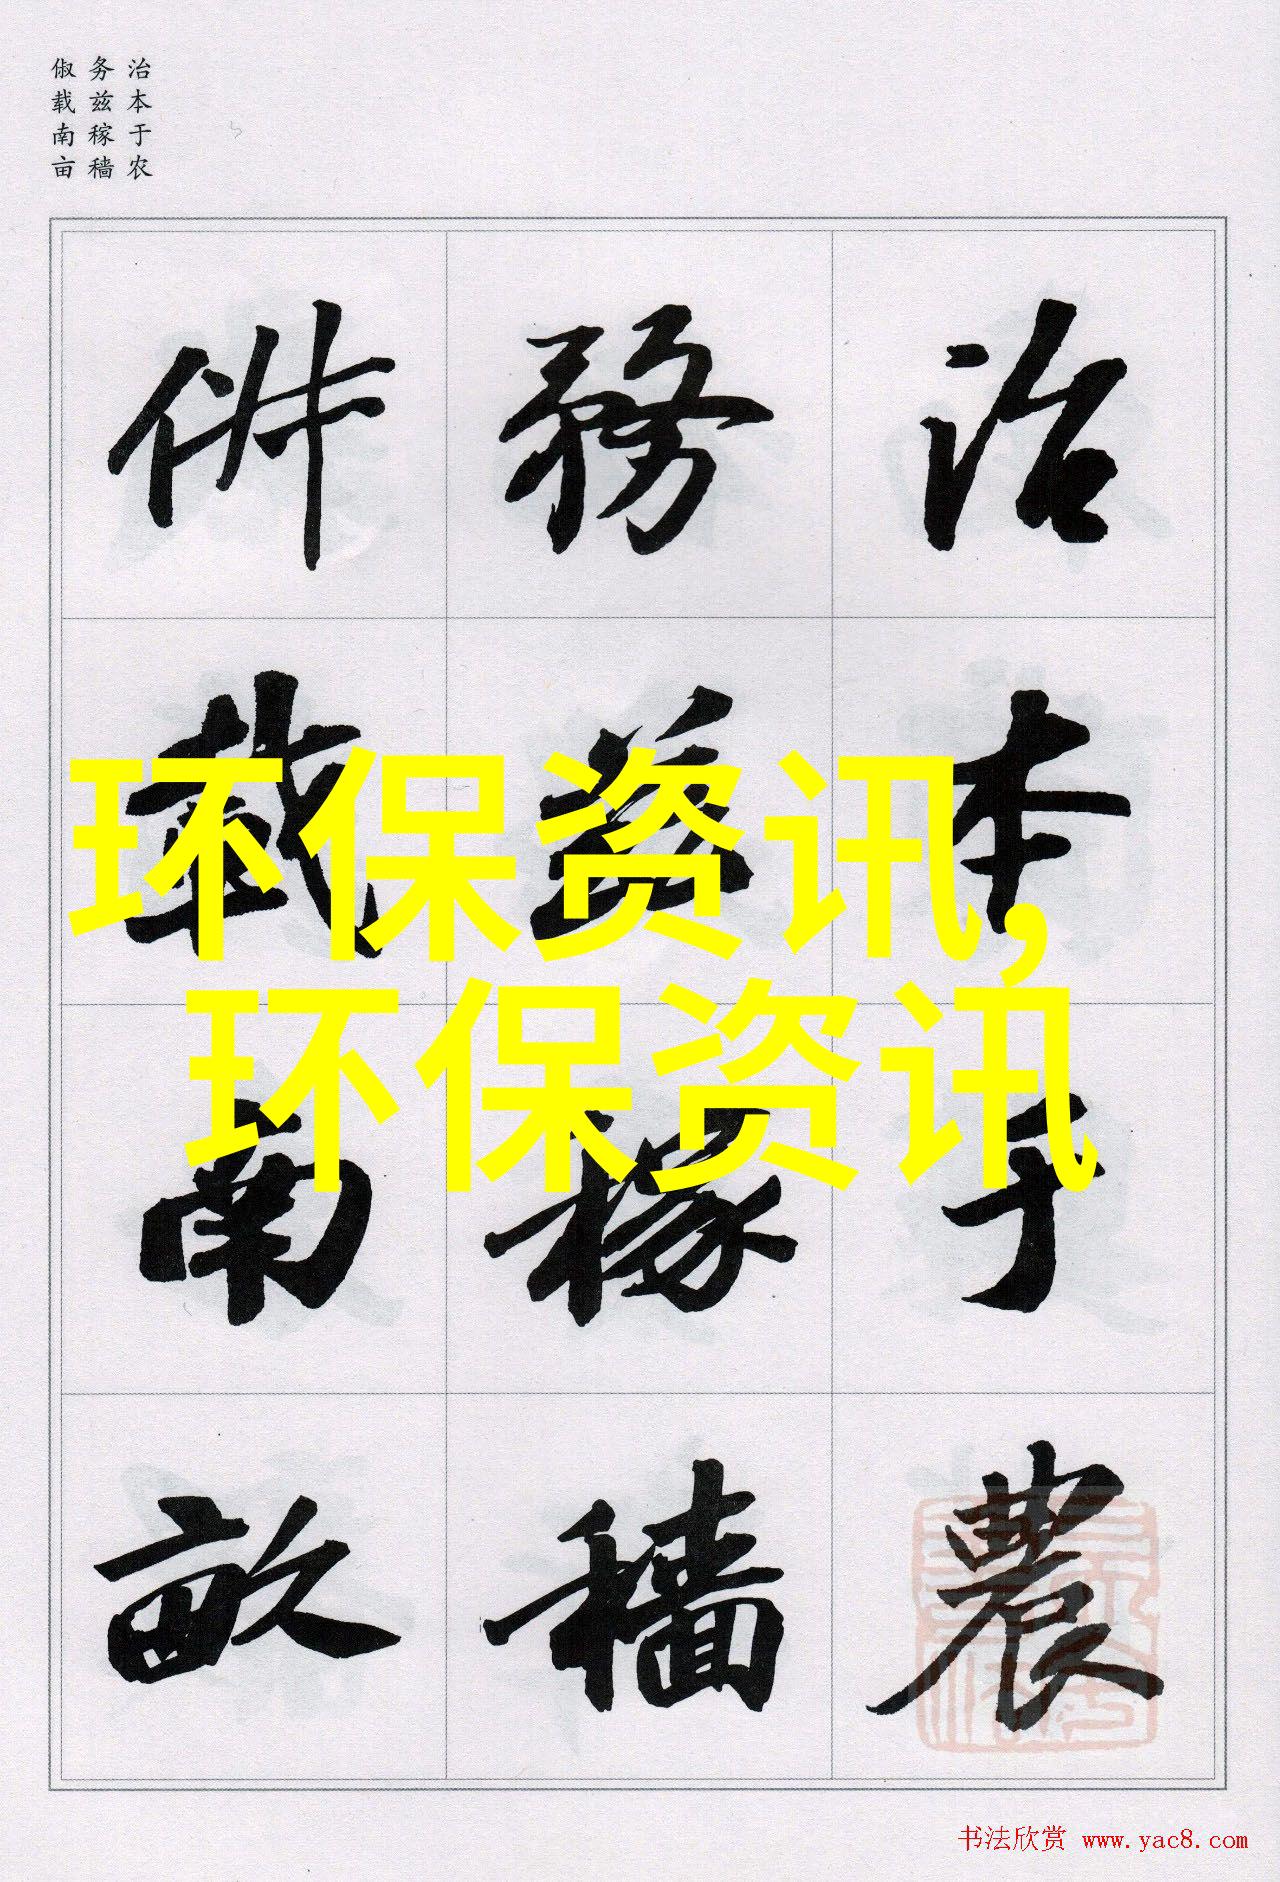 治本于农
务兹稼穑
俶载南亩
治本于農
務茲稼穡
俶載南畝
环保资讯,
环保资讯
书法欣赏 www.yac8.com